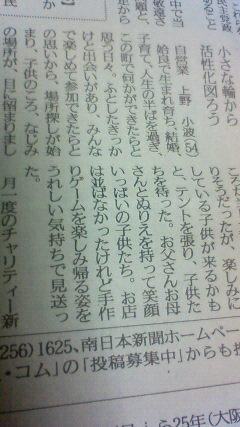 小さな輪から
活性化図ろう
自営業　上野　小波(54)
姶良で生まれ育ち、結婚、
子育て、人生の半ばを過ぎ、
この町で何かができたらと
思う日々。ふとしたきっか
けと出会いがあり、みんな
で楽しめて参加できたらと
の思いから、場所探しが始
まり、子供のころ、なじみ
の場所が、目に留まりまし
た。
月一度のチャリティー新
りそうだったが、楽しみに
している子供が来るかも
と、テントを張り、子供た
ちを待った。お父さんお母
さんとぬりえを持って笑顔
いっぱいの子供たち。お店
は並ばなかったけれど手作
りゲームを楽しみ帰る姿を
うれしい気持ちで見送っ
256)1625、南日本新聞ホームペー
・コム」の「投稿募集中」からも投
から25年(大阪